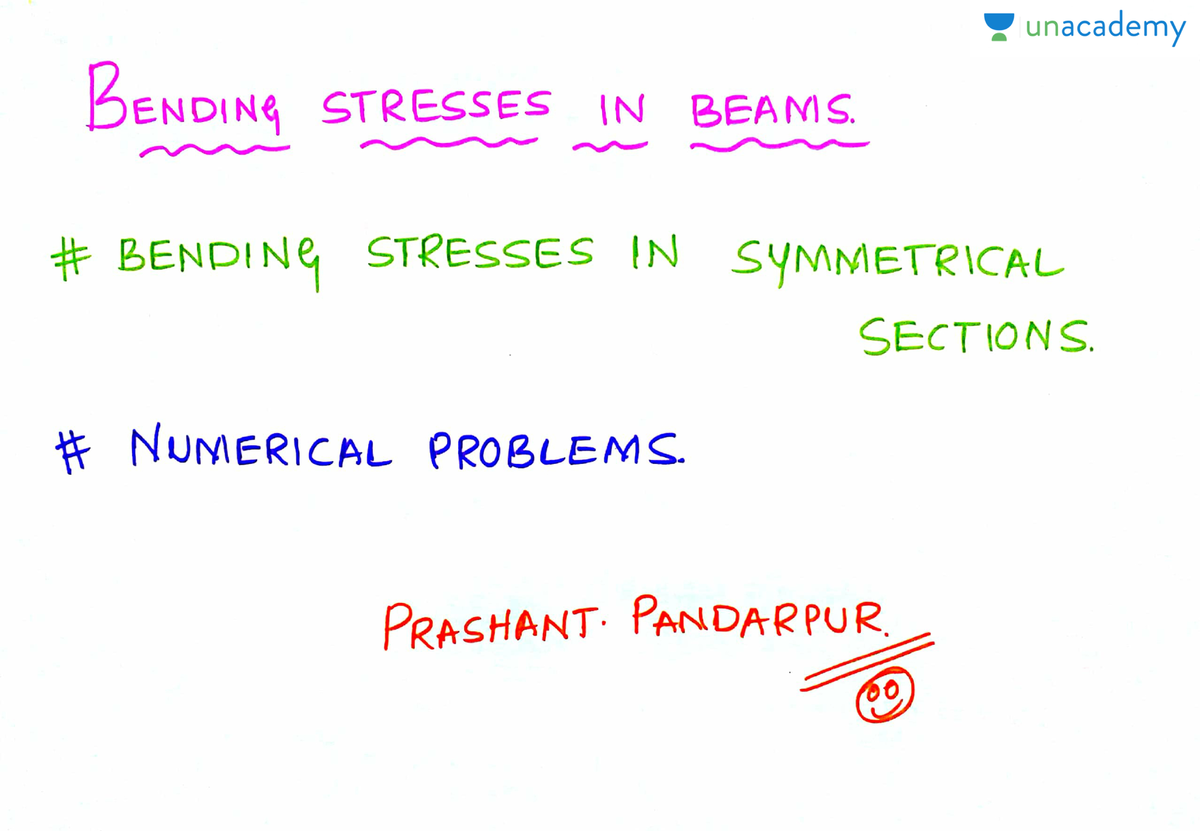 unacademy
BENDING STRESSES IN BEAMS.
# BENDING STRESSES IN SYMMETRICAL
SECTIONS.
# NUMERICAL PROBLEMS.
PRASHANT. PANDARPUR.